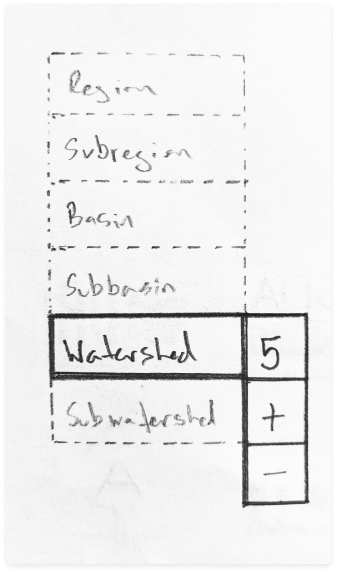 Region
Subregion
Basin
Subbasin
Watershed 5
Subwatershed +
-